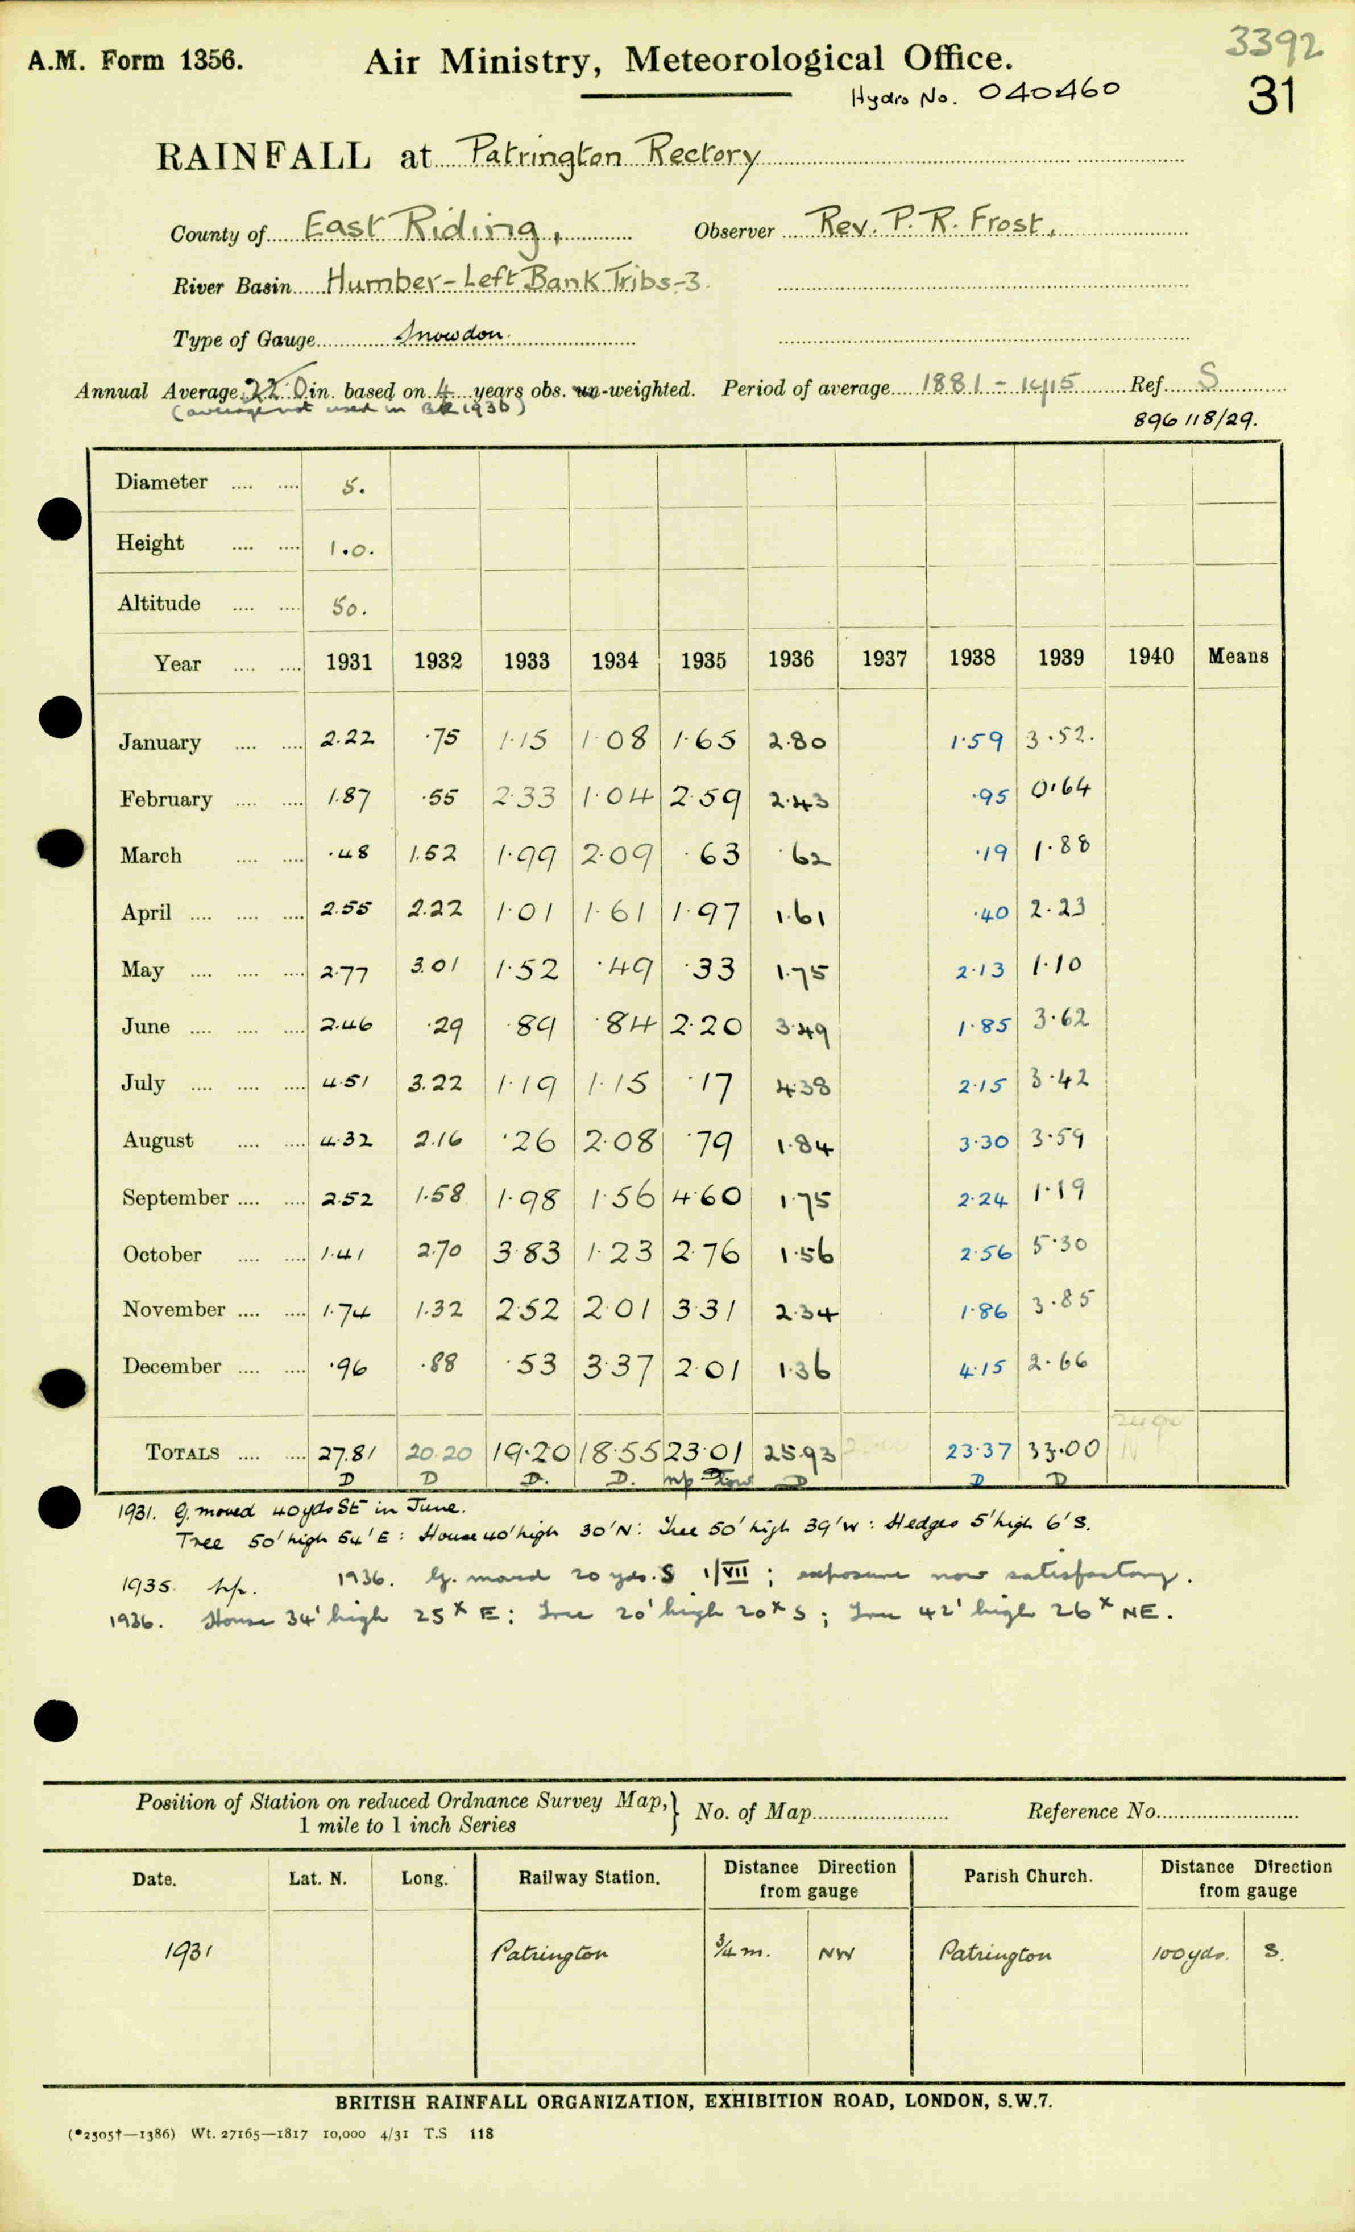 3392
A.M. Form 1356. Air Ministry, Meteorological Office.
Hydro No. 040460 31
RAINFALL at Patrington Rectory
County of East Riding, Observer Rev. P. R. Frost,
River Basin Humber-Left Bank Tribs-3.
Type of Gauge Snowdon.
Annual Average 22.0 in. based on 4 years obs. un-weighted. Period of average 1881-1915 Ref. S
(average not used in BR 1936) 896118/29.
Diameter .... .... 5.
Height .... .... 1.0.
Altitude .... .... 50.
Year .... .... 1931 1932 1933 1934 1935 1936 1937 1938 1939 1940 Means
January .... .... 2.22 .75 1.15 1.08 1.65 2.80 1.59 3.52.
February .... .... 1.87 .55 2.33 1.04 2.59 2.43 .95 0.64
March .... .... .48 1.52 1.99 2.09 .63 .62 .19 1.88
April .... .... .... 2.55 2.22 1.01 1.61 1.97 1.61 .40 2.23
May .... .... .... 2.77 3.01 1.52 .49 .33 1.75 2.13 1.10
June .... .... .... 2.46 .29 .89 .84 2.20 3.49 1.85 3.62
July .... .... .... 4.51 3.22 1.19 1.15 .17 4.38 2.15 3.42
August .... .... 4.32 2.16 .26 2.08 .79 1.84 3.30 3.59
September .... .... 2.52 1.58 1.98 1.56 4.60 1.75 2.24 1.19
October .... .... 1.41 2.70 3.83 1.23 2.76 1.56 2.56 5.30
November .... .... 1.74 1.32 2.52 2.01 3.31 2.34 1.86 3.85
December .... .... .96 .88 .53 3.37 2.01 1.36 4.15 2.66
TOTALS .... .... 27.81 20.20 19.20 18.55 23.01 25.93 23.37 33.00
D D D. D. D D D
1931. G. moved 40yds SE in June.
Tree 50' high 54' E: House 40' high 30' N: Tree 50' high 39' W: Hedges 5' high 6' S.
1935. 1936. G. moved 20 yds. S 1/VII; exposure now satisfactory.
1936. House 34' high 25ˣ E; Tree 20' high 20ˣ S; Tree 42' high 26ˣ NE.
Position of Station on reduced Ordnance Survey Map,} No. of Map Reference No.
1 mile to 1 inch Series
Date. Lat. N. Long. Railway Station. Distance Direction from gauge Parish Church. Distance Direction from gauge
1931 Patrington 3/4 m. NW Patrington 100 yds. S.
BRITISH RAINFALL ORGANIZATION, EXHIBITION ROAD, LONDON, S.W.7.
(*2505†—1386) Wt. 27165—1817 10,000 4/31 T.S 118